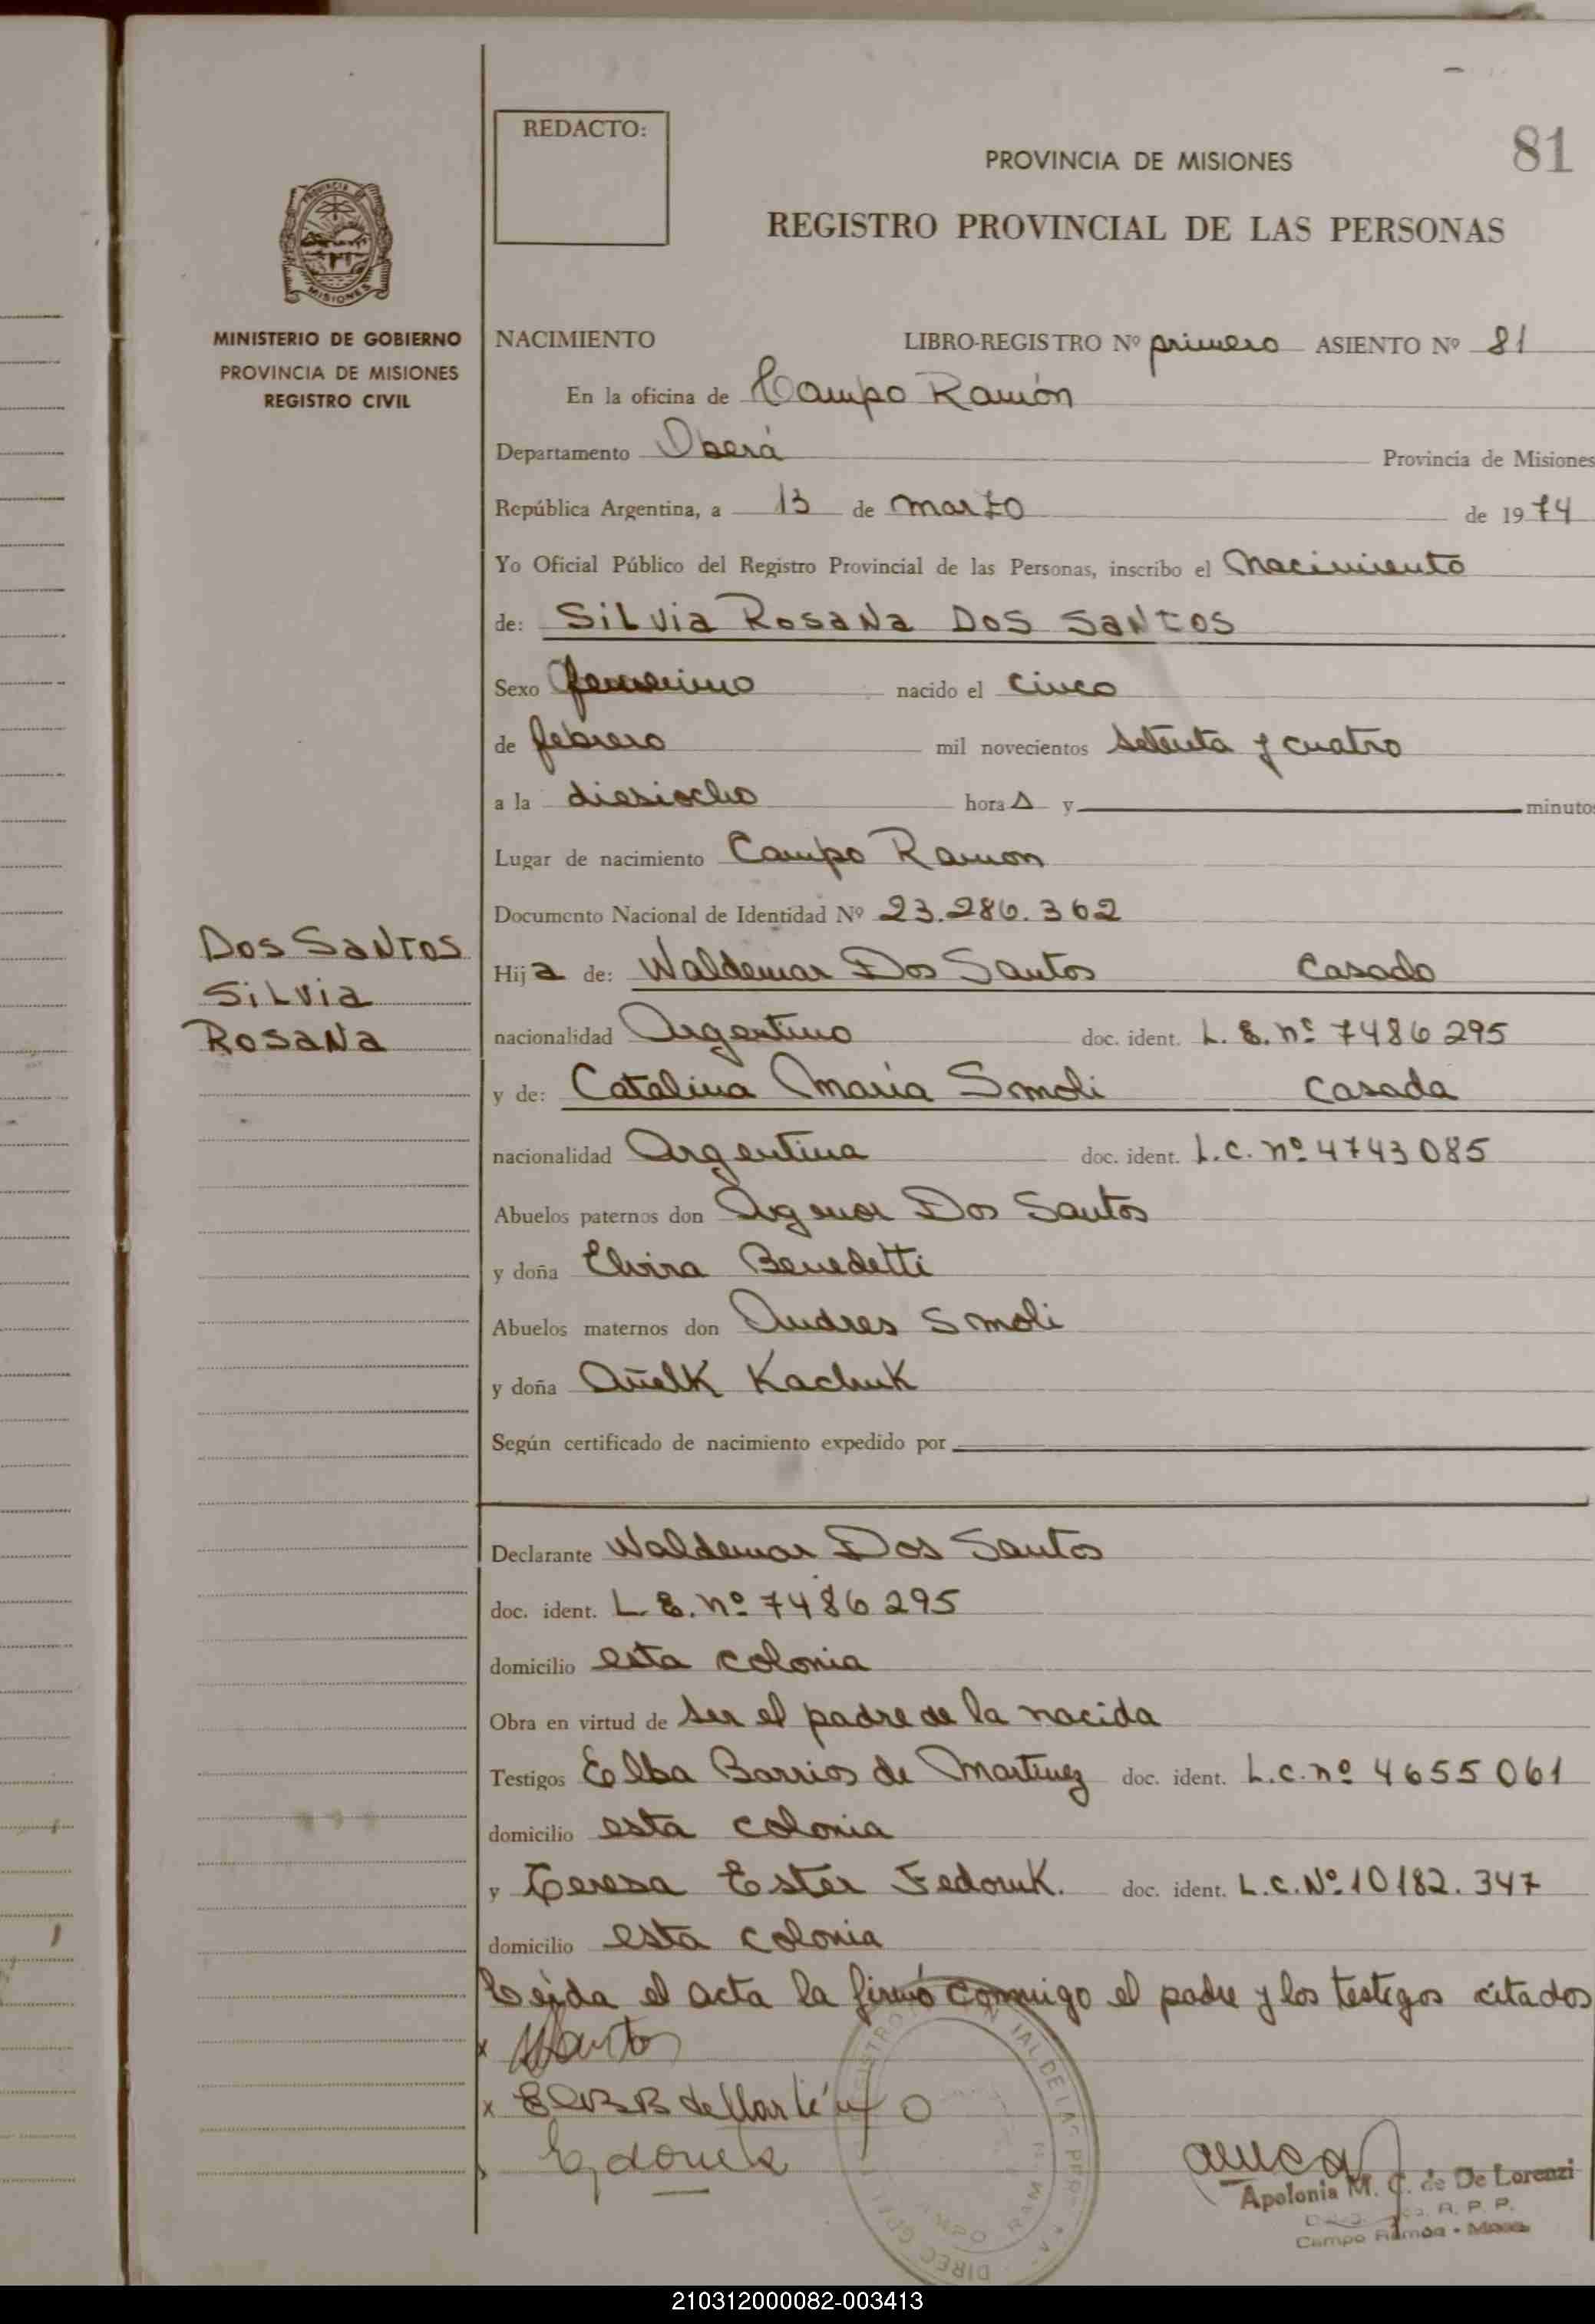 REDACTO:
PROVINCIA DE MISIONES
81
REGISTRO PROVINCIAL DE LAS PERSONAS
MISIONES
MINISTERIO DE GOBIERNO
PROVINCIA DE MISIONES
REGISTRO CIVIL
NACIMIENTO LIBRO-REGISTRO Nº primero ASIENTO Nº 81
En la oficina de Campo Ramón
Departamento Oberá Provincia de Misiones
República Argentina, a 13 de marzo de 1974
Yo Oficial Público del Registro Provincial de las Personas, inscribo el nacimiento
de: Silvia Rosana Dos Santos
Sexo femenino nacido el cinco
de febrero mil novecientos setenta y cuatro
a la diesiocho horas y minutos
Lugar de nacimiento Campo Ramon
Documento Nacional de Identidad Nº 23.286.362
Dos Santos
Silvia
Rosana
Hija de: Waldemar Dos Santos casado
nacionalidad Argentino doc. ident. L. E. nº 7486295
y de: Catalina Maria Smoli casada
nacionalidad Argentina doc. ident. L.C. nº 4743085
Abuelos paternos don Agenor Dos Santos
y doña Elvira Benedetti
Abuelos maternos don Andres Smoli
y doña Añelk Kachuk
Según certificado de nacimiento expedido por
Declarante Waldemar Dos Santos
doc. ident. L. E. nº 7486295
domicilio esta colonia
Obra en virtud de ser el padre de la nacida
Testigos Elba Barrios de Martinez doc. ident. L.C. nº 4655061
domicilio esta colonia
y Teresa Ester Fedouk. doc. ident. L.C. Nº 10182.347
domicilio esta colonia
Leida el acta la firmó conmigo el padre y los testigos citados
Apolonia M. C. de De Lorenzi
R. P. P.
Campo Ramón - Mnes
210312000082-003413